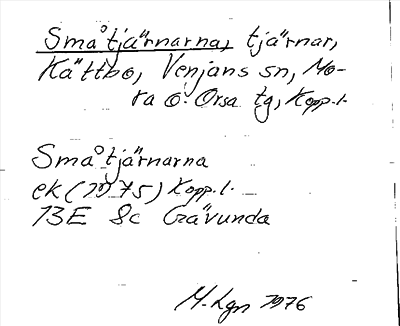 Småtjärnarna, tjärnar,
Kättbo, Venjans sn, Mo-
ra o. Orsa tg, Kopp. l.
Småtjärnarna
ek (1975) Kopp. l.
13E 8c Gävunda
M. Lgn 1976